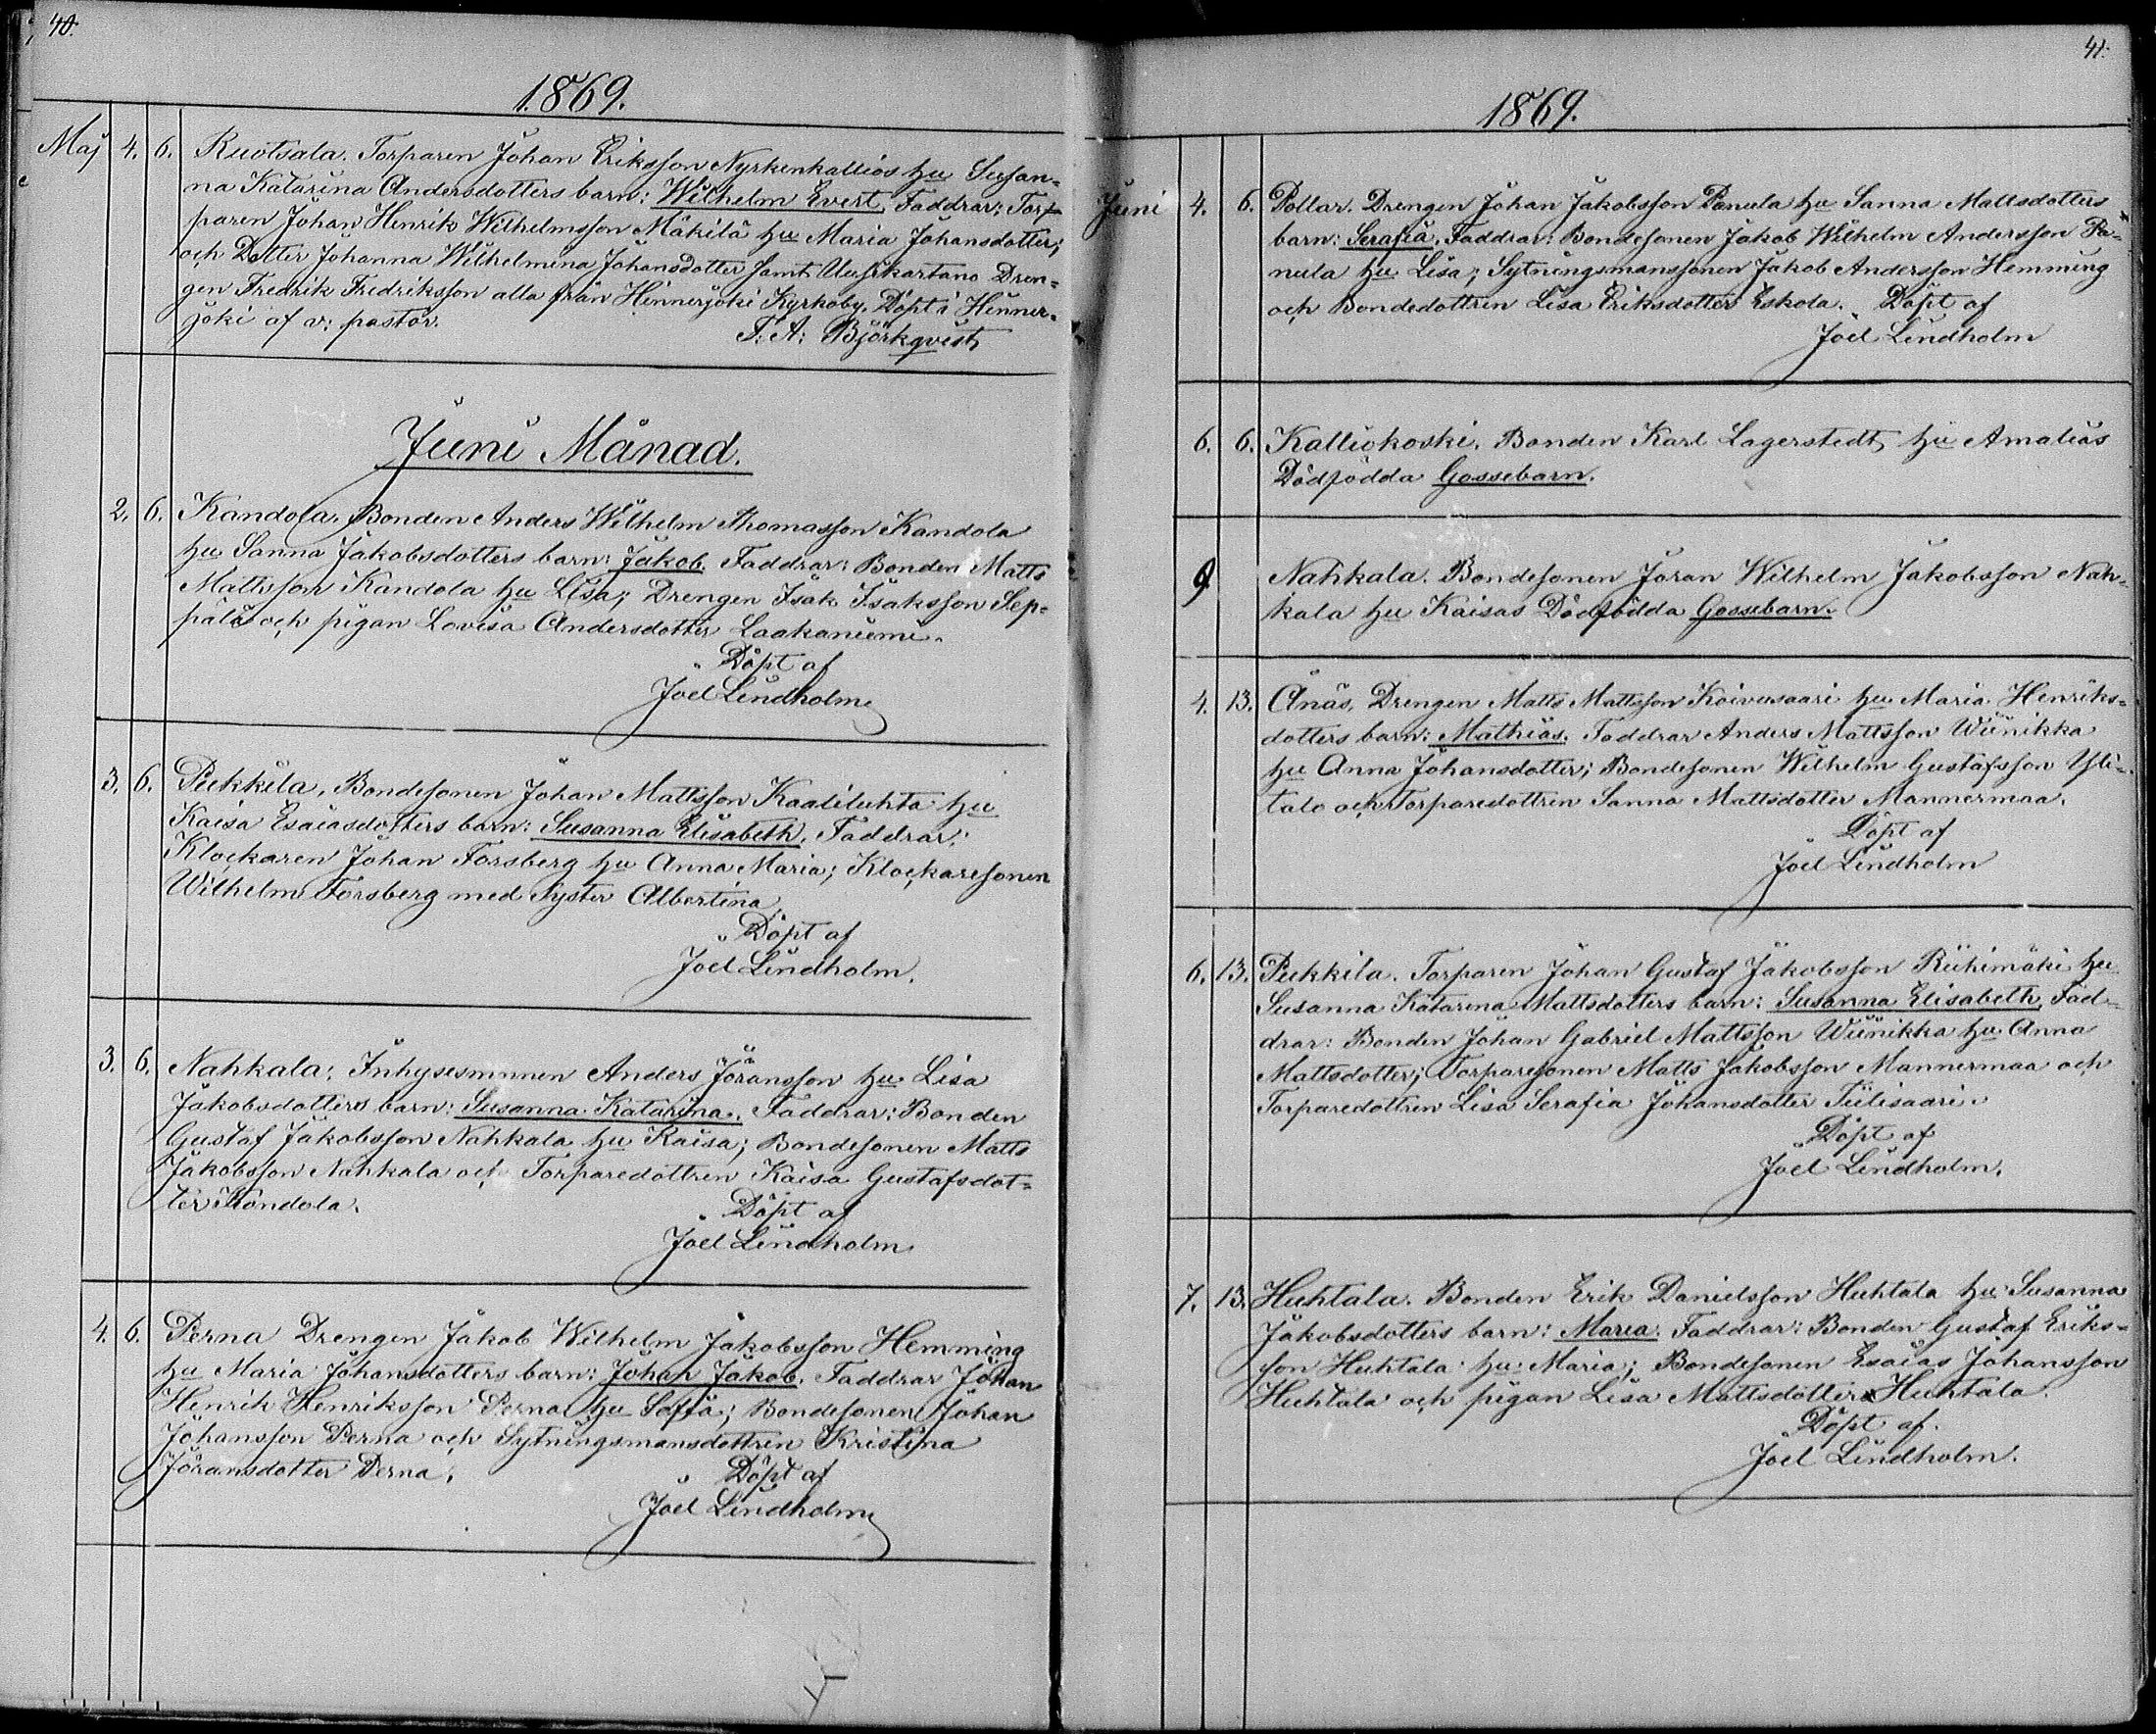 40.
1869.
Maj 4. 6. Ruotsala. Torparen Johan Eriksson Nyrkenkallios hu Susan-
na Katarina Andersdotters barn: Wilhelm Evert, Faddrar: Tor-
paren Johan Henrik Wilhelmsson Mäkilä hu Maria Johansdotter;
och Dotter Johanna Wilhelmina Johansdotter samt Uusikartano Dren-
gen Fredrik Fredriksson alla från Hinnerjoki Kyrkoby. Döpt i Hinner-
joki af v: pastor.
F: A: Björkqvist
Juni Månad.
2. 6. Kandola. Bonden Anders Wilhelm Thomasson Kandola
hu Sanna Jakobsdotters barn: Jakob. Faddrar: Bonden Matts
Mattsson Kandola hu Lisa; Drengen Isak Isaksson Sep-
pälä och pigan Lovisa Andersdotter Laakaniemi.
Döpt af
Joel Lindholm
3. 6. Pukkila, Bondesonen Johan Mattsson Kaaliluhta hu
Kaisa Esaiasdotters barn: Susanna Elisabeth. Faddrar:
Klockaren Johan Forsberg hu Anna Maria; Klockaresonen
Wilhelm Forsberg med Syster Albertina
Döpt af
Joel Lindholm.
3. 6. Nahkala: Inhysesmnnen Anders Jöransson hu Lisa
Jakobsdotters barn: Susanna Katarina. Faddrar: Bonden
Gustaf Jakobsson Nahkala hu Kaisa; Bondesonen Matts
Jakobsson Nahkala och Torparedottren Kaisa Gustafsdot-
ter Kondola.
Döpt af
Joel Lindholm
4. 6. Perna Drengen Jakob Wilhelm Jakobsson Hemming
hu Maria Johansdotters barn: Johan Jakob. Faddrar Johan
Henrik Henriksson Perna hu Sofia; Bondesonen Johan
Johansson Perna och Sytningsmansdottren Kristina
Jöransdotter Perna.
Döpt af
Joel Lindholm
41.
1869.
Juni 4. 6. Pollar. Drengen Johan Jakobsson Panula hu Sanna Mattsdotters
barn: Serafia. Faddrar: Bondesonen Jakob Wilhelm Andersson Pa-
nula hu Lisa; Sytningsmanssonen Jakob Andersson Hemming
och Bondedottren Lisa Eriksdotter Eskola. Döpt af
Joel Lindholm
6. 6. Kalliokoski. Bonden Karl Lagerstedt hu Amalias
Dödfödda Gossebarn.
9 Nahkala. Bondesonen Jöran Wilhelm Jakobsson Nah-
kala hu Kaisas Dödfödda Gossebarn.
4. 13. Ånäs, Drengen Matts Mattsson Koivusaari hu Maria Henriks-
dotters barn: Mathias. Faddrar Anders Mattsson Wiinikka
hu Anna Johansdotter; Bondesonen Wilhelm Gustafsson Yli-
talo och Torparedottren Sanna Mattsdotter Mannermaa.
Döpt af
Joel Lindholm
6. 13. Pukkila. Torparen Johan Gustaf Jakobsson Riihimäki hu
Susanna Katarina Mattsdotters barn: Susanna Elisabeth, Fad-
drar: Bonden Johan Gabriel Mattsson Wiinikka hu Anna
Mattsdotter; Torparesonen Matts Jakobsson Mannermaa och
Torparedottren Lisa Serafia Johansdotter Tiilisaari.
Döpt af
Joel Lindholm.
7. 13. Huhtala. Bonden Erik Danielsson Huhtala hu Susanna
Jakobsdotters barn: Maria. Faddrar: Bonden Gustaf Eriks-
son Huhtala hu: Maria; Bondesonen Esaias Johansson
Huhtala och pigan Lisa Mattsdotter Huhtala.
Döpt af.
Joel Lindholm.